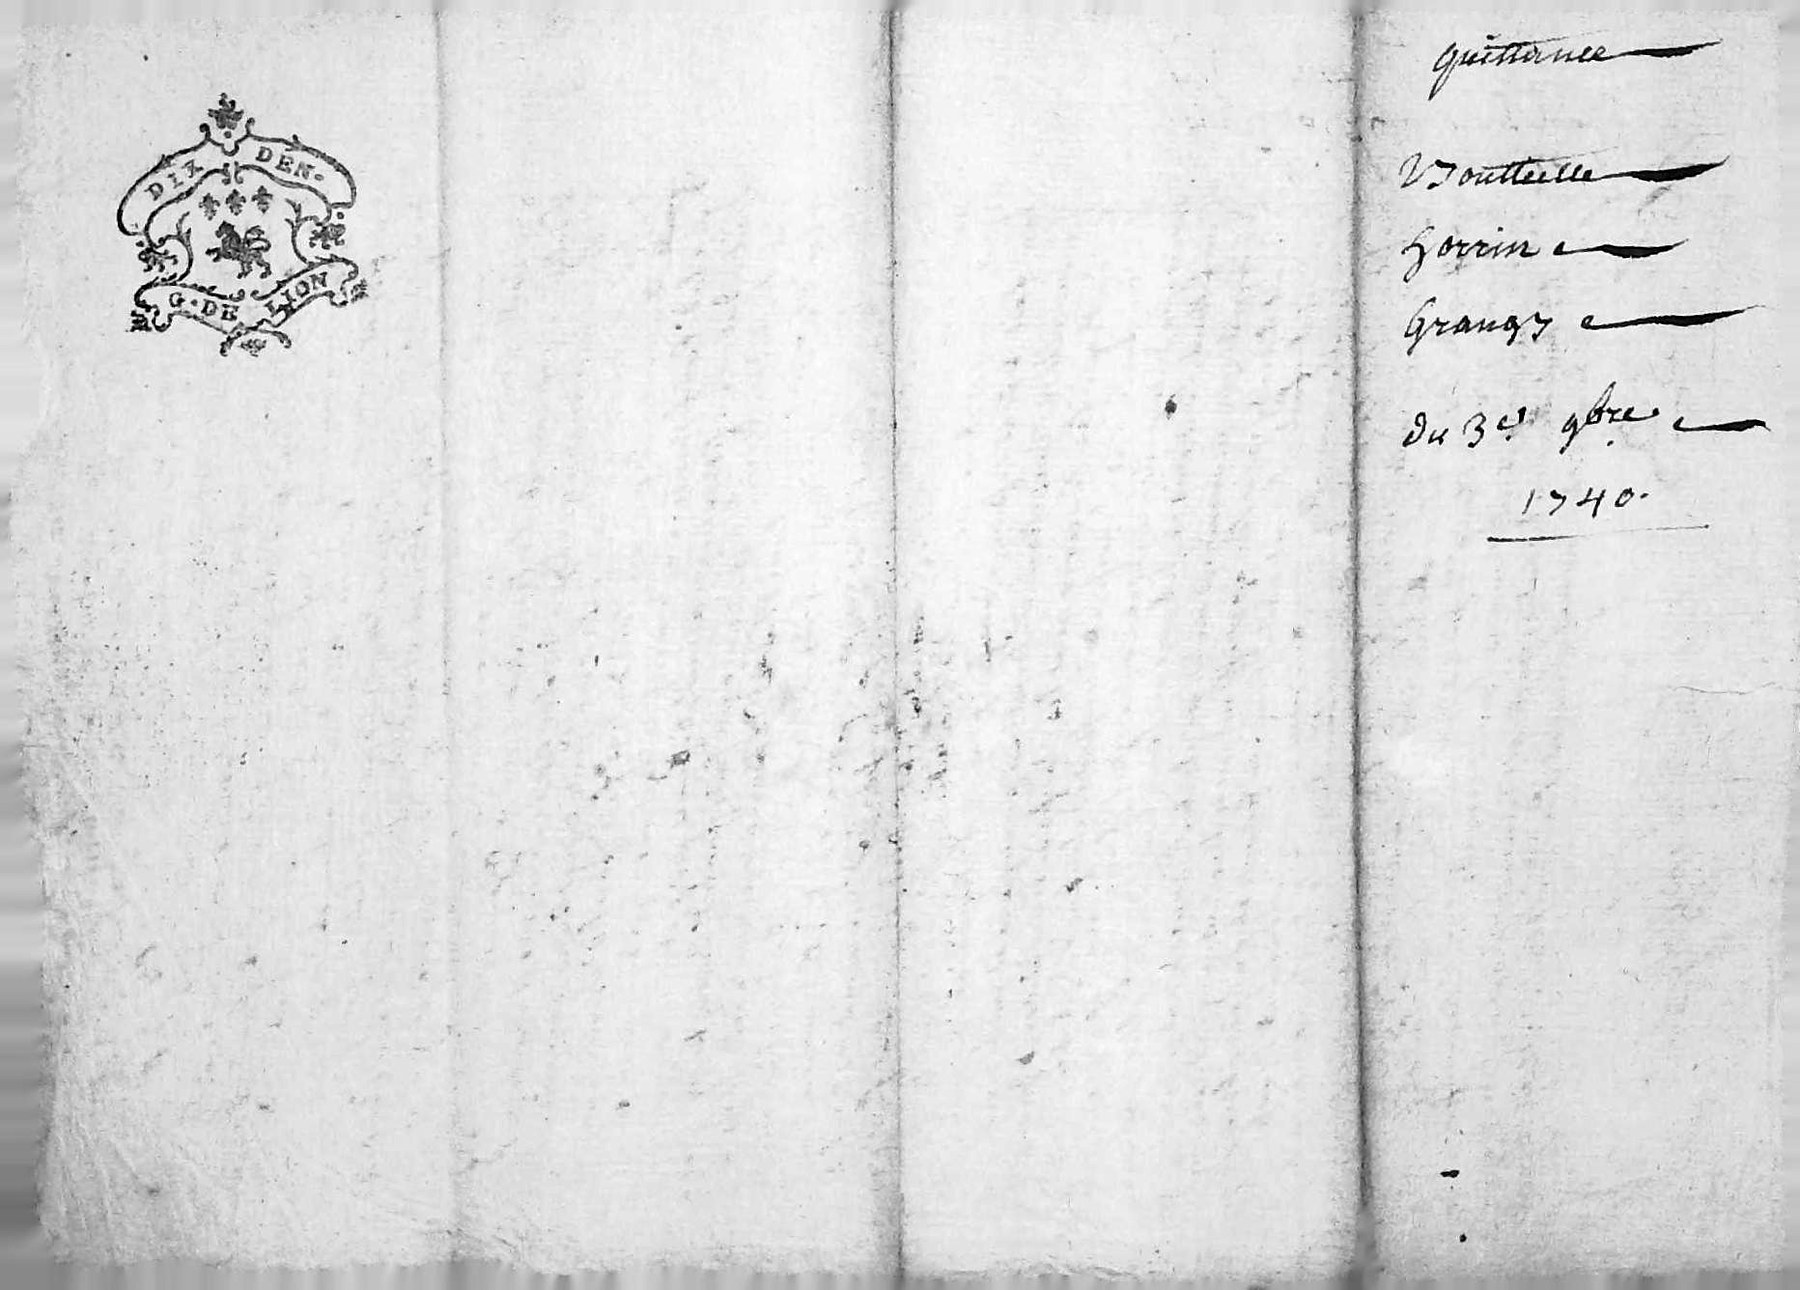 DIX DEN.
G. DE LION
quittance
Gorrin
Grangy
du 3e. 9bre.
1740.